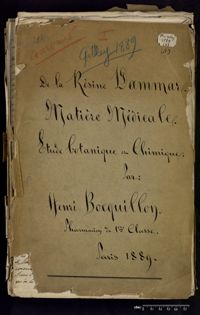 Gobley 1889
De la Résine Dammar.
Matière Médicale.
Etude botanique & Chimique.
Par:
Henri Bocquillon.
Pharmacien de 1re Classe.
Paris 1889.